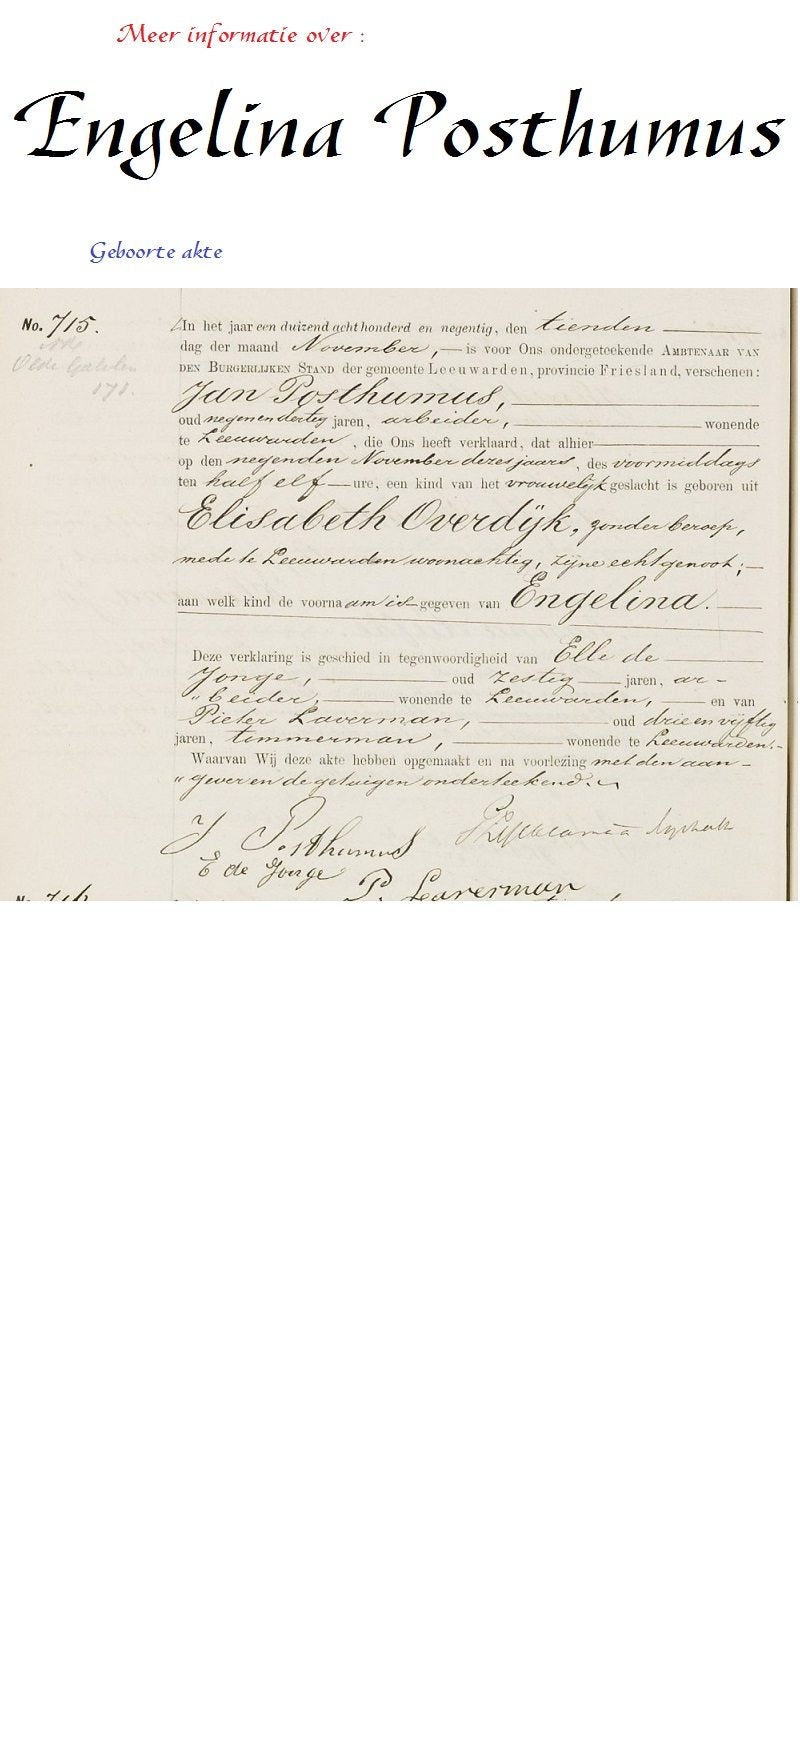 Meer informatie over :
Engelina Posthumus
Geboorte akte
No. 715.
In het jaar een duizend acht honderd en negentig, den tienden
dag der maand November, is voor Ons ondergeteekende AMBTENAAR VAN
DEN BURGERLIJKEN STAND der gemeente Leeuwarden, provincie Friesland, verschenen:
Jan Posthumus,
oud negenendertig jaren, arbeider, wonende
te Leeuwarden, die Ons heeft verklaard, dat alhier
op den negenden November dezes jaars, des voormiddags
ten half elf ure, een kind van het vrouwelijk geslacht is geboren uit
Elisabeth Overdijk, zonder beroep,
mede te Leeuwarden woonachtig, zijne echtgenoot;
aan welk kind de voornaam is gegeven van Engelina.
Deze verklaring is geschied in tegenwoordigheid van Elle de
Jonge, oud zestig jaren, ar-
"beider, wonende te Leeuwarden, en van
Pieter Laverman, oud drie en vijftig
jaren, timmerman, wonende te Leeuwarden.
Waarvan Wij deze akte hebben opgemaakt en na voorlezing met den aan-
"gever en de getuigen onderteekend.
J Posthumus
E de Jonge
P. Laverman
No. 716